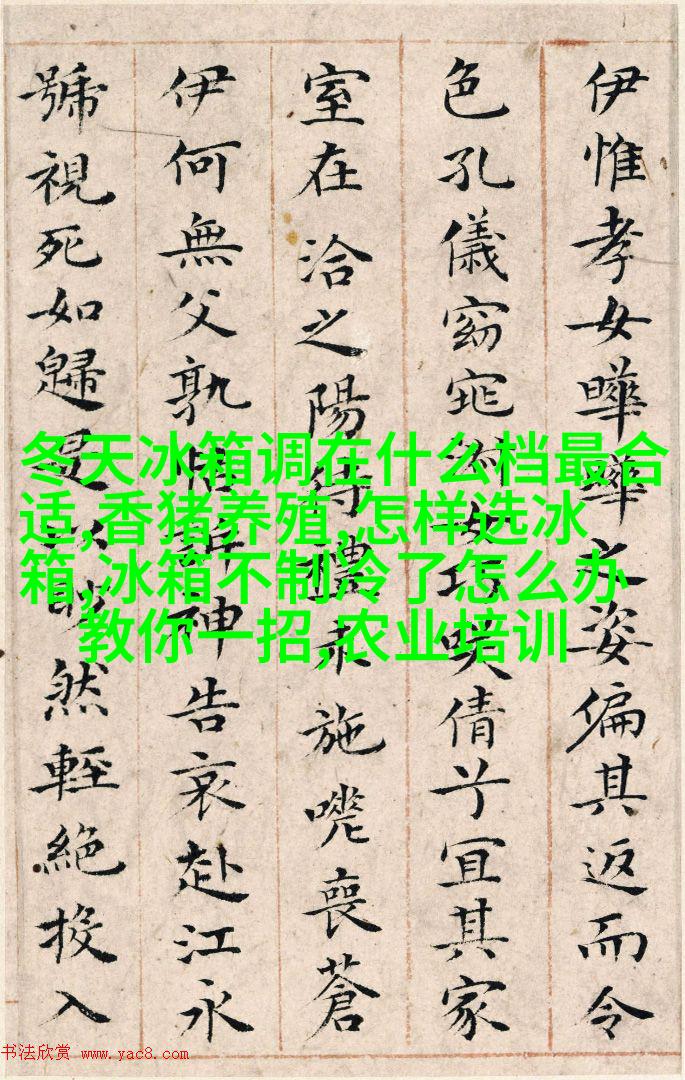 伊惟孝女曄曄之姿偏其返而令
色孔儀窈窕淑女巧咲倩兮宜其家
室在洽之陽待禮未施嗟喪蒼
伊何無父孰怙訴神告哀赴江永
號視死如歸是以眇然輕絕投入
冬天冰箱调在什么档最合
适,香猪养殖,怎样选冰
箱,冰箱不制冷了怎么办
教你一招,农业培训
书法欣赏 www.yac8.com